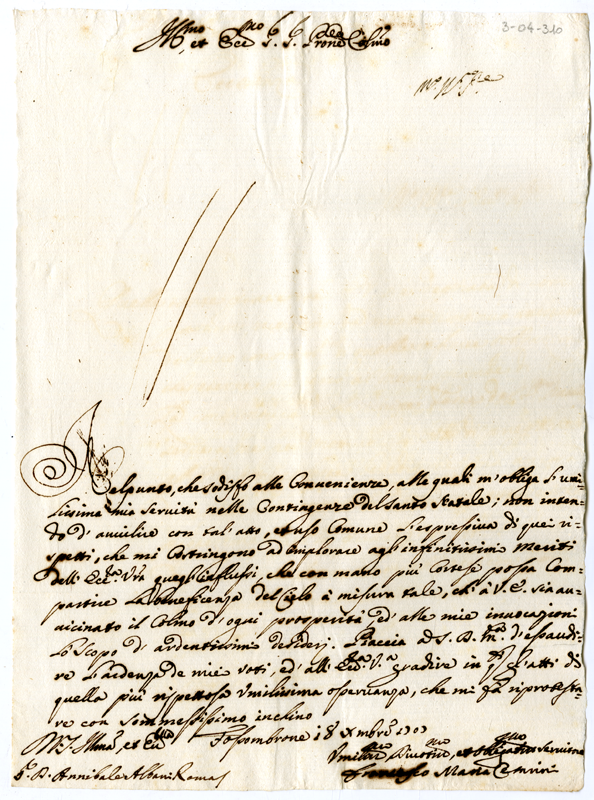 3-04-310
Ill.mo et Ecc.mo S. S. Prone Col.mo
Nel punto, che sodisfo alle Convenienze, alle quali m'obliga l'umi-
lissima mia servitù nelle Contingenze del Santo Natale; non inten-
do d'avvilire con tal atto, et uso Comune l'espressiva di quei ri-
spetti, che mi Costringono ad implorare agl'infinitissimi Meriti
dell'Ecc.za V.ra quegl'influssi, che con mano più Cortese possa Com-
partire la beneficenza del Cielo à misura tale, ch'à V.E. sia av-
vicinato il Colmo d'ogni prosperità, ed'alle mie invocazioni
lo scopo d'ardentissimi desiderj. Piaccia à S. D. M.tà d'essaudi-
re l'ardenza de miei voti, ed'all'Ecc.za V.ra gradire in q.ti gl'atti di
quella più rispettosa Umilissima osservanza, che mi fà riprotesta-
re con sommessissimo inchino
Fossombrone 18 Xmbre 1703
Umiliss.mo Divotiss.mo, et Obligatiss.mo Servitore
Francesco Maria
S. D. Annibale Albani Roma